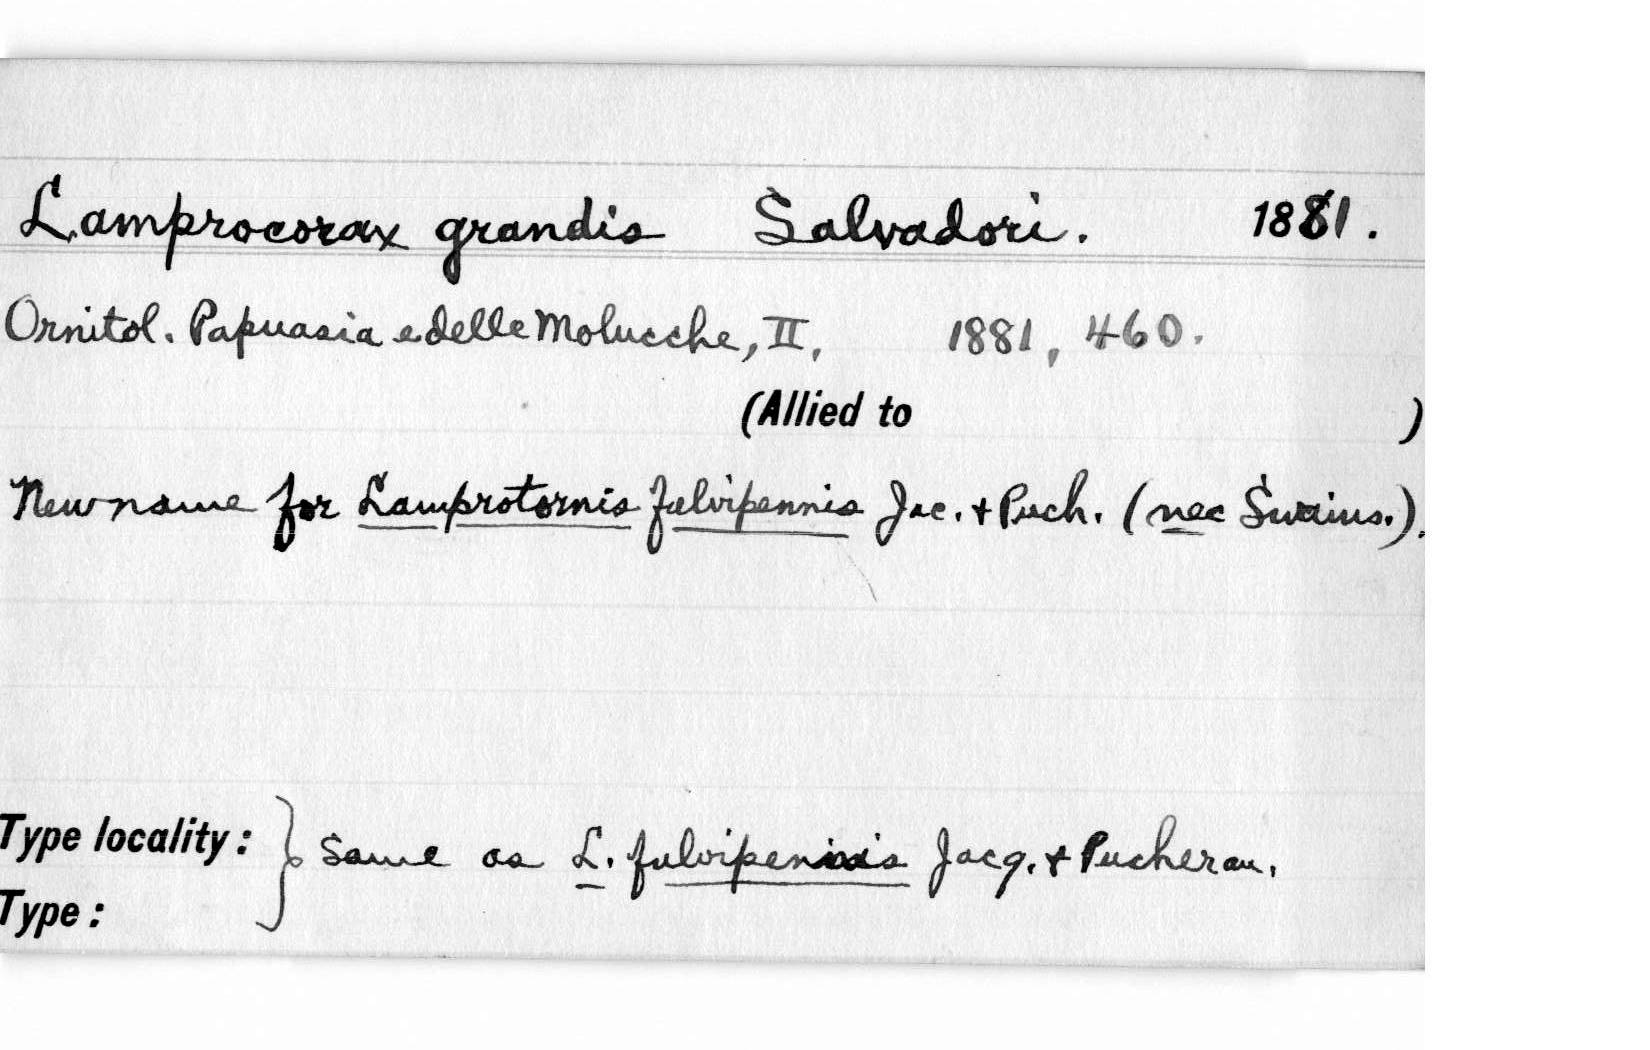 Lamprocorax grandis Salvadori. 1881.
Ornitol. Papuasia e delle Molucche, II, 1881, 460.
(Allied to )
New name for Lamprotornis fulvipennis Jac. + Puch. (nec Swains.).
Type locality: } Same as L. fulvipennis Jacq. + Pucheran.
Type: